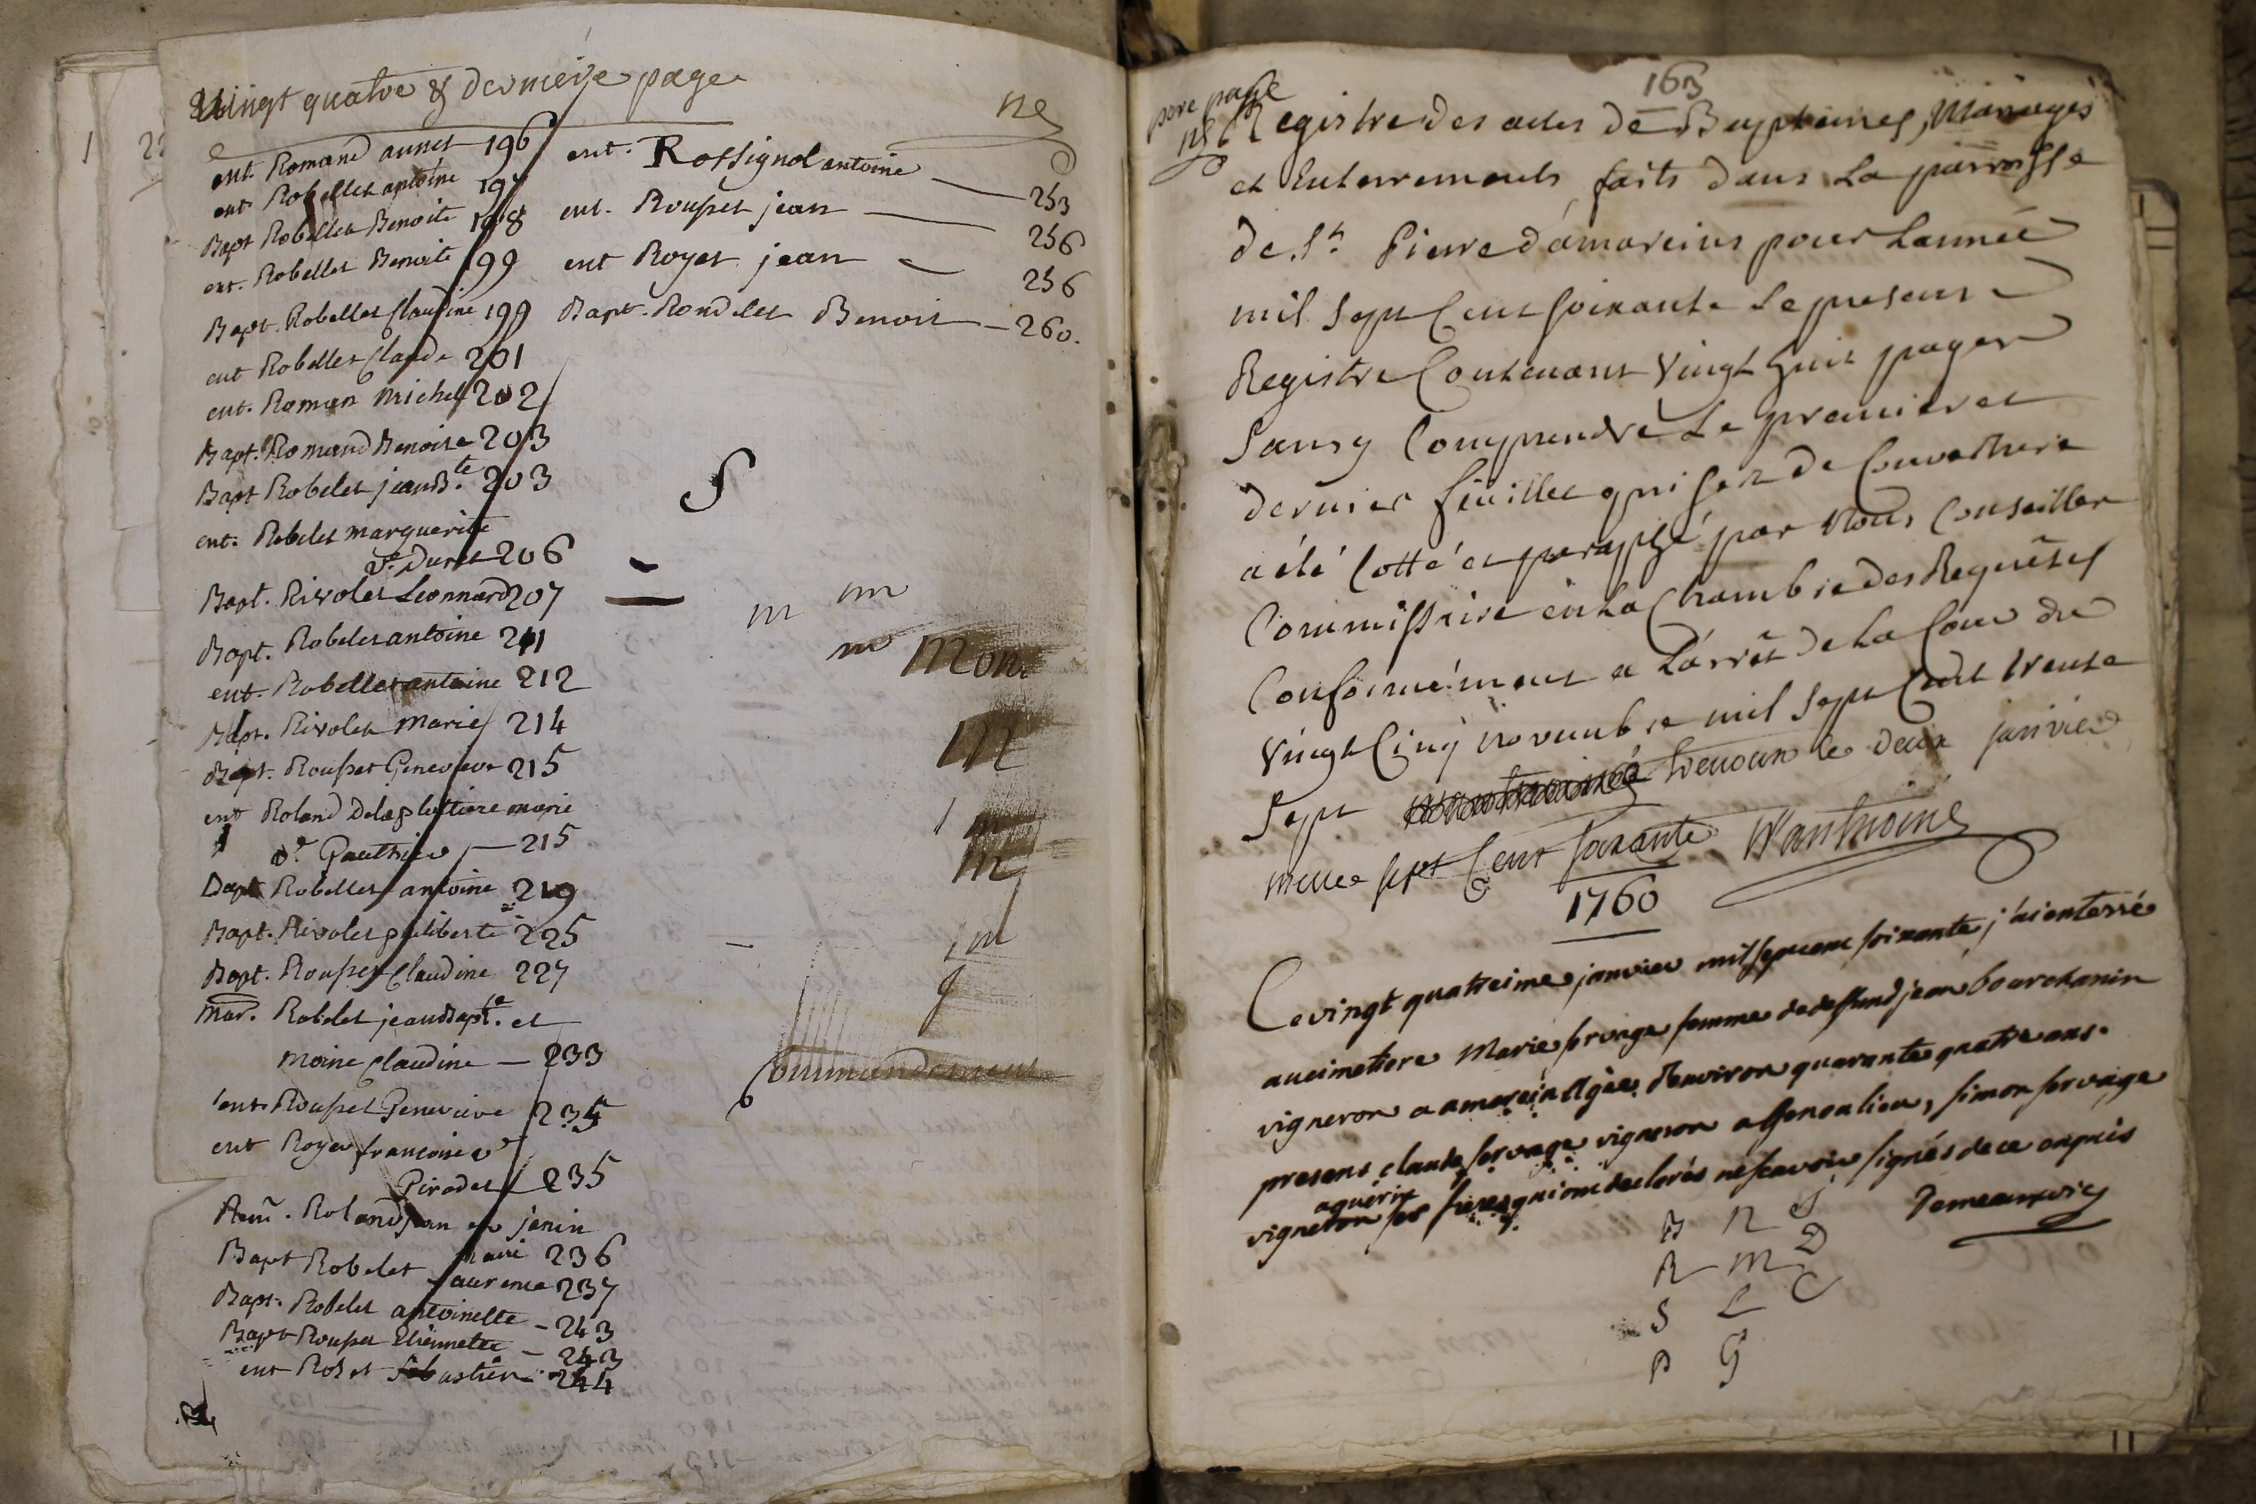 Vingt quatre & derniere page
ne
ent. Romand annet 196
ent. Robellet antoine 197
Bapt Robellet Benoite 198
ent. Robellet Benoite 199
Bapt. Robellet Claudine 199
ent Robellet Claude 201
ent. Roman Michel 202
Bapt. Romand Benoite 203
Bapt Robelet jean B.te 203
ent. Robelet marguerite
ve. Duret 206
Bapt. Rivolet Leonnard 207
Bapt. Robelet antoine 211
ent. Robellet antoine 212
Bapt. Rivolet Marie 214
Bapt. Rousset Genevieve 215
ent Roland Delaplattiere marie
ve Gauthier 215
Bapt Robellet antoine 219
Bapt. Rivolet philiberte 225
Bapt. Rousset Claudine 227
Mar. Robelet jean Bapt.e et
Moine Claudine — 233
ent. Rousset Genevieve 234
ent Royer francoise ve
Girodet 235
Roland jean et janin
marie 236
Bapt Robelet laurence 237
Bapt. Robelet antoinette — 243
Bapt Rousset Etiennette — 243
ent Roset Sebastien 244
ent. Rossignol antoine — 253
ent. Rousset jean — 256
ent Royer jean — 256
Bapt. Rondelet Benoit — 260.
S
m m
m Mon
M
1 m
M
m
Commandement
163
pere page
Registre des actes de Baptemes, Mariages
et Enterrements faits dans la parroisse
de St. Pierre d'amareins pour Lannée
mil Sept Cent soixante Le present
Registre Contenant Vingt huit pages
Sans y Comprendre Le premier et
dernier feuillet qui sert de Couverture
a été Cotté et paraphé par Nous Conseiller
Commissaire en la Chambre des Requêtes
Conformément a L'arrêt de la Cour du
Vingt Cinq novembre mil Sept Cent trente
Sept Trevoux le deux janvier
mille sept Cent soixante
1760
Ce vingt quatreime janvier mil sept cent soixante j'ai enterré
au cimetiere Marie servage femme de deffund jean bourchanin
vigneron a amarein agée d'environ quarante quatre ans.
presens claude servage vigneron a genoulieu, simon servage
aguerin
vigneron ses freres qui ont declarés ne scavoir signés de ce enquis
B N S
R M D
S L C
P G